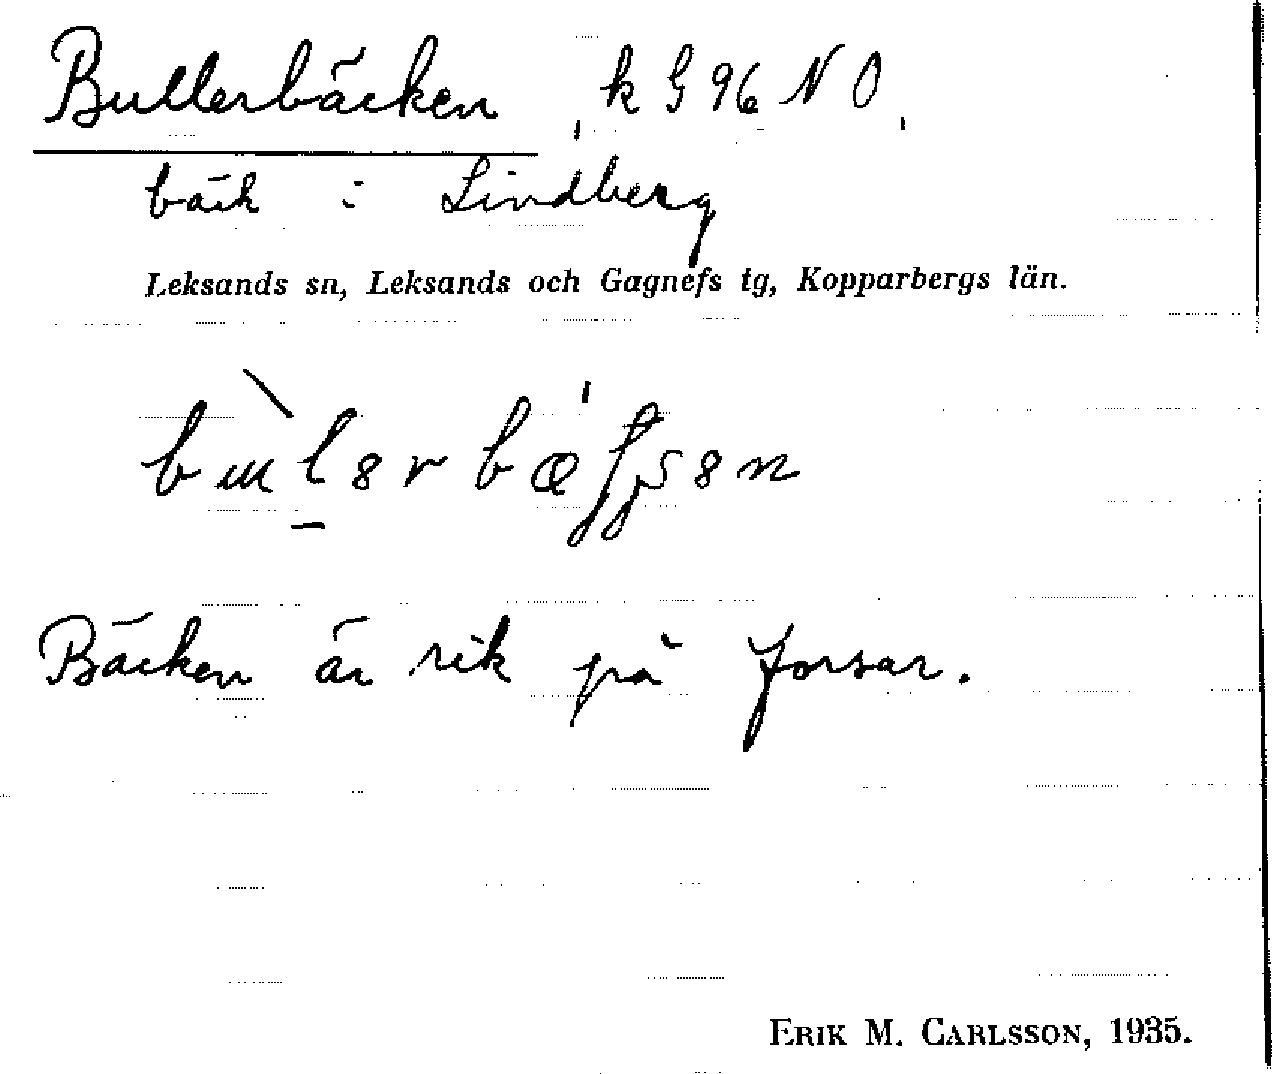 Bullerbäcken k G 96 N O
bäck i Lindberg
Leksands sn, Leksands och Gagnefs tg, Kopparbergs län.
Bäcken är rik på forsar.
ERIK M. CARLSSON, 1935.